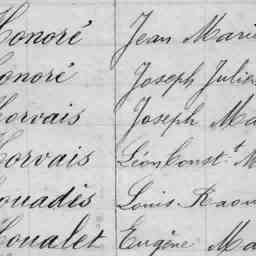 Honoré Jean Marie
Honoré Joseph Julien
Horvais Joseph Ma
Horvais Léon Const.t M
Houadès Louis Raou
Houalet Eugène Ma